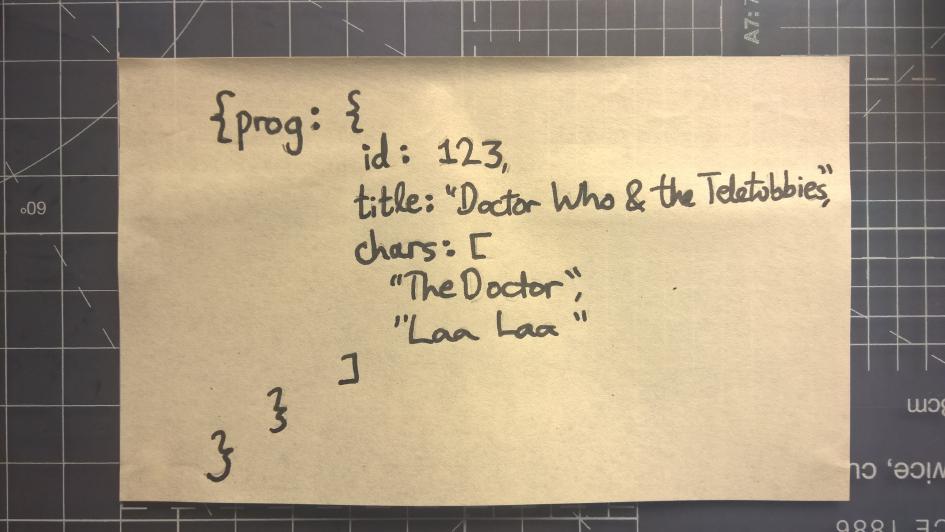 {prog: {
id: 123,
title: "Doctor Who & the Teletubbies",
chars: [
"The Doctor",
"Laa Laa"
]
}
}
A7:
60°
vice, cu